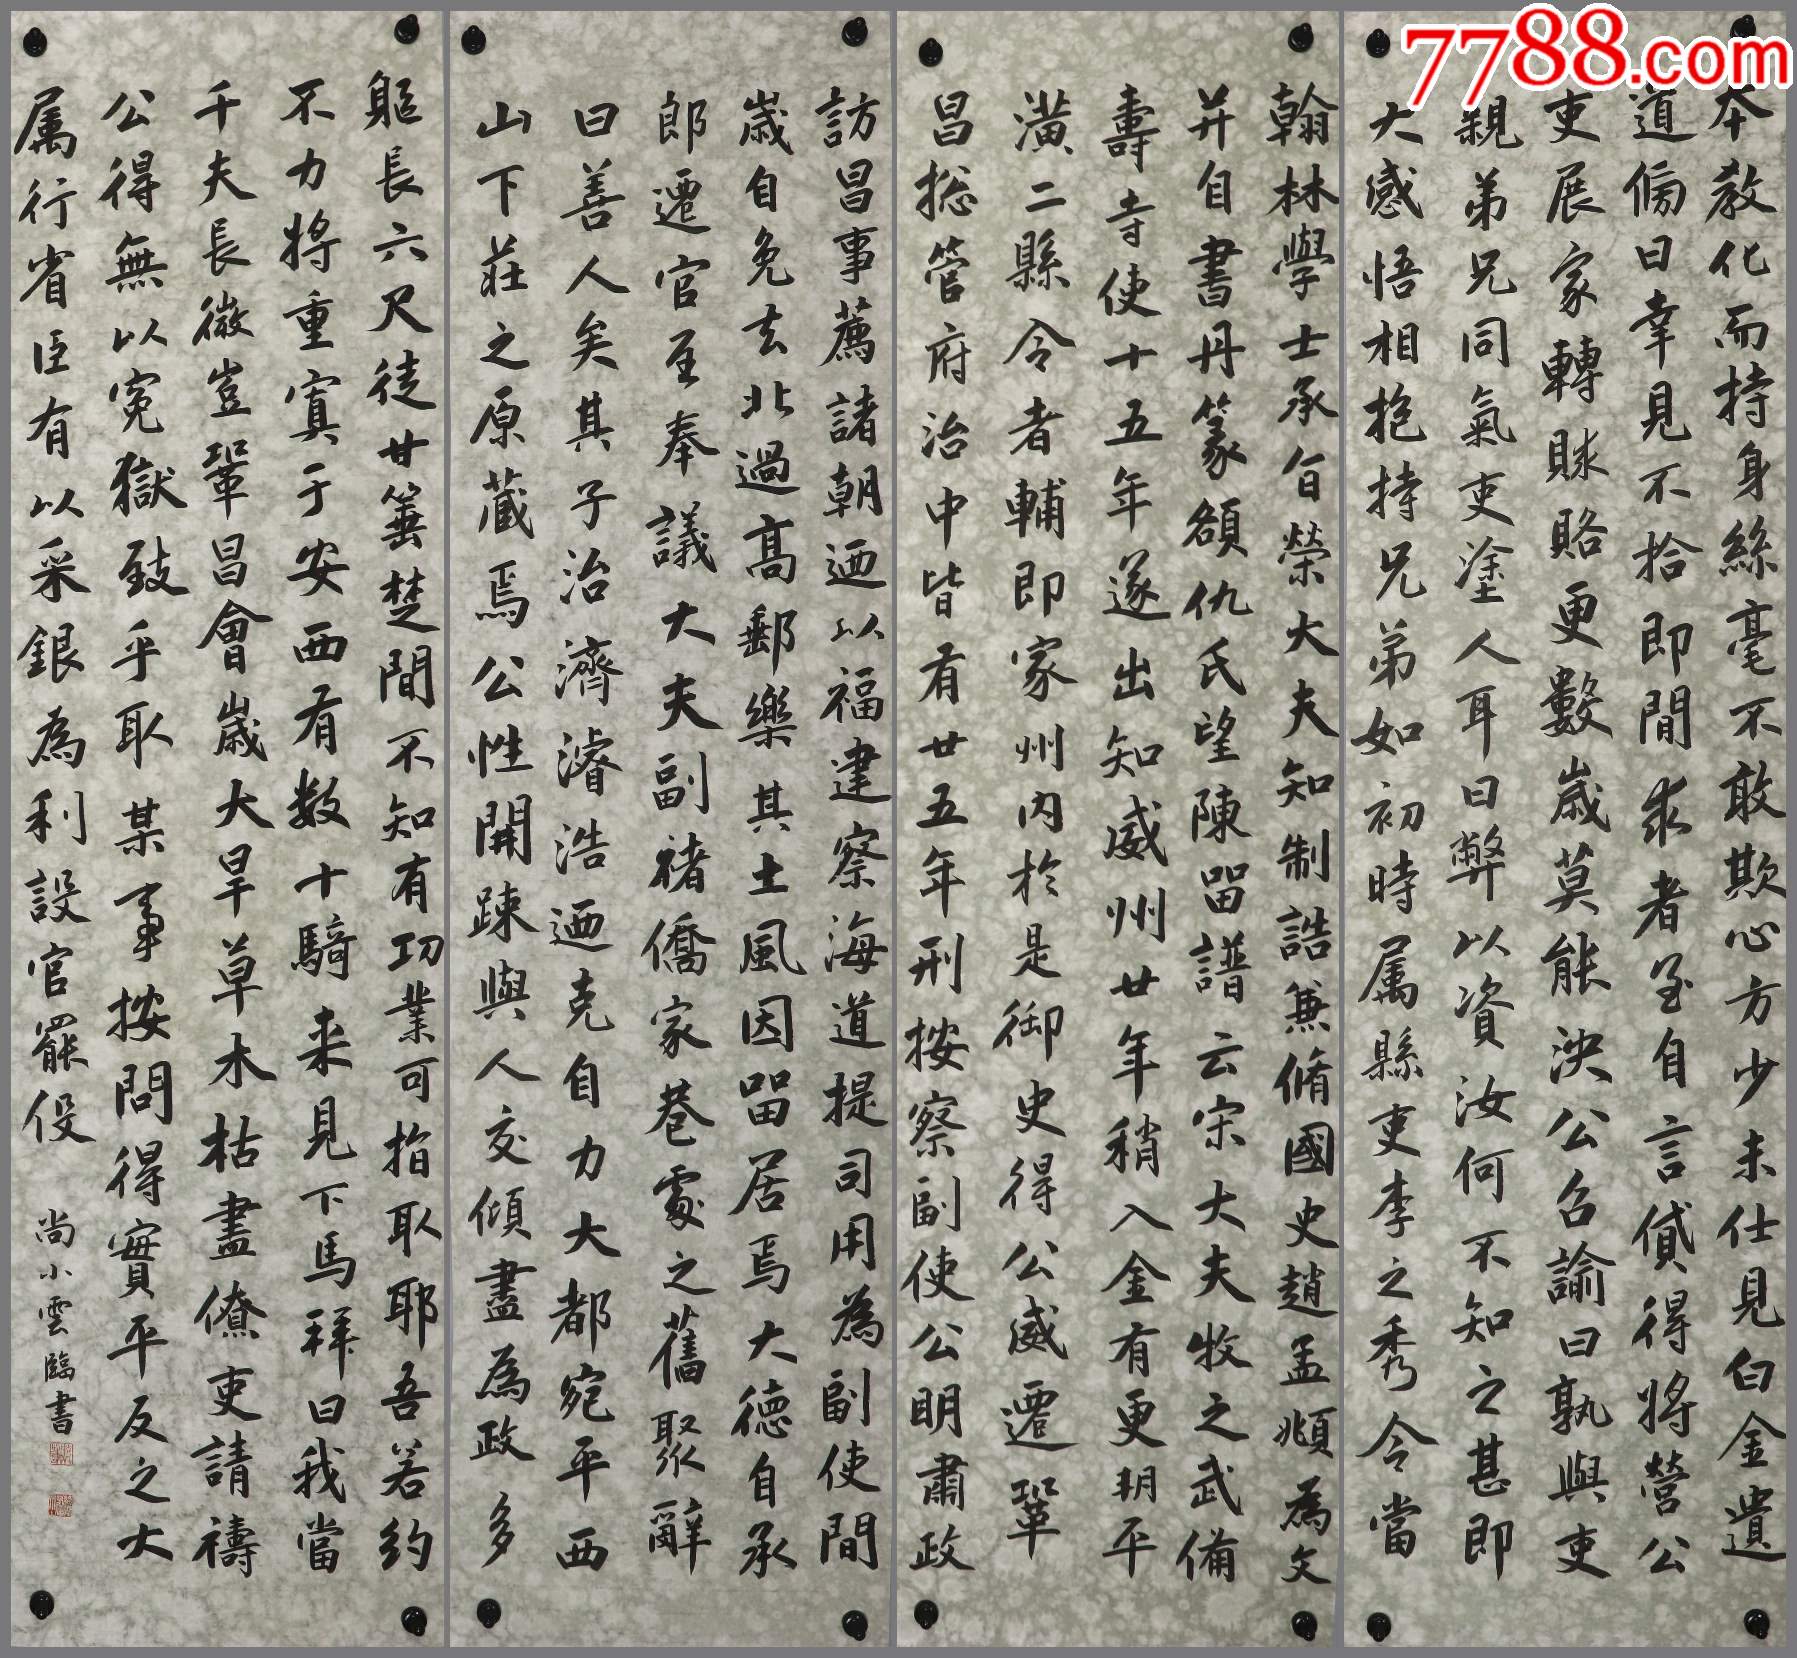 7788.com
本教化而持身絲毫不敢欺心方少未仕見白金遺
道傍曰幸見不拾即間求者至自言貸得將營公
吏展家轉賕賂更數歲莫能決公召諭曰孰與吏
親弟兄同氣吏塗人耳曰弊以資汝何不知之甚即
大感悟相抱持兄弟如初時属縣吏李之秀令當
翰林學士承旨榮大夫知制誥兼脩國史趙孟頫為文
并自書丹篆額仇氏望陳留譜云宋大夫牧之武備
壽寺使十五年遂出知威州廿年稍入金有更明平
潢二縣令者輔即家州內於是御史得公威遷鞏
昌捴管府治中皆有廿五年刑按察副使公明肅政
訪昌事薦諸朝迺以福建察海道提司用為副使間
歲自免去北過高郵樂其土風因留居焉大德自承
郎遷官至奉議大夫副褚僑家巷處之舊聚辭
曰善人矣其子治濟濬浩迺克自力大都宛平西
山下莊之原藏焉公性開疎與人交傾盡為政多
軀長六尺徒廿箠楚間不知有功業可指耴耶吾若約
不力將重寘于安西有数十騎来見下馬拜曰我當
千夫長微豈鞏昌會歲大旱草木枯盡僚吏請禱
公得無以冤獄致乎耴某事按問得實平反之大
属行省臣有以采銀為利設官罷役
尚小雲臨書